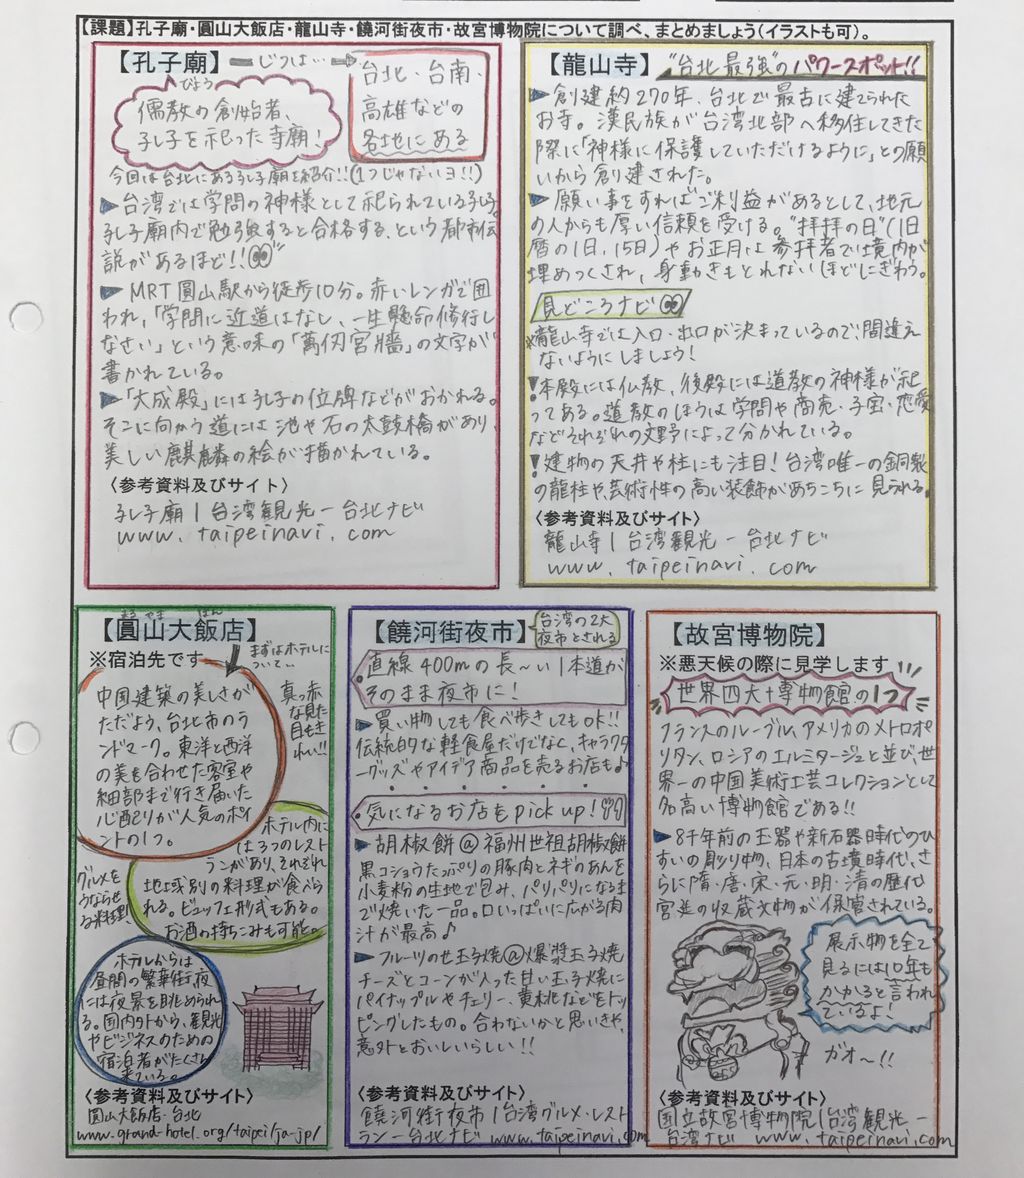 【課題】孔子廟・圓山大飯店・龍山寺・饒河街夜市・故宮博物院について調べ、まとめましょう(イラストも可)。
【孔子廟】
びょう
じつは…
台北・台南・
高雄などの
各地にある
儒教の創始者、
孔子を祀った寺廟!
今回は台北にある孔子廟を紹介!!(1つじゃないヨ!!)
▶台湾では学問の神様として祀られている孔子。
孔子廟内で勉強すると合格する、という都市伝
説があるほど!!
▶MRT圓山駅から徒歩10分。赤いレンガで囲
われ、「学問に近道はなし、一生懸命修行し
なさい」という意味の「萬仞宮牆」の文字が
書かれている。
▶「大成殿」には孔子の位牌などがおかれる。
そこに向かう道には池や石の太鼓橋があり、
美しい麒麟の絵が描かれている。
〈参考資料及びサイト〉
孔子廟|台湾観光-台北ナビ
www.taipeinavi.com
【龍山寺】
"台北最強"のパワースポット!!
▶創建約270年、台北で最古に建てられた
お寺。漢民族が台湾北部へ移住してきた
際に「神様に保護していただけるように」との願
いから創建された。
▶願い事をすればご利益があるとして、地元
の人からも厚い信頼を受ける。"拝拝の日"(旧
暦の1日、15日)やお正月は参拝者で境内が
埋めつくされ、身動きもとれないほどにぎわう。
見どころナビ
※龍山寺では入口・出口が決まっているので、間違え
ないようにしましょう!
!本殿には仏教、後殿には道教の神様が祀
ってある。道教のほうは学問や商売・子宝・恋愛
などそれぞれの文野によって分かれている。
!建物の天井や柱にも注目!台湾唯一の銅製
の龍柱や、芸術性の高い装飾があちこちに見られる。
〈参考資料及びサイト〉
龍山寺|台湾観光-台北ナビ
www.taipeinavi.com
まる やま はん
【圓山大飯店】
※宿泊先です
まずはホテルに
ついて…
中国建築の美しさが
ただよう、台北市のラ
ンドマーク。東洋と西洋
の美を合わせた客室や
細部まで行き届いた
心配りが人気のポイ
ントの1つ。
真っ赤
な見た
目もき
れい!!
ホテル内に
は3つのレスト
ランがあり、それぞれ
地域別の料理が食べら
れる。ビュッフェ形式もある。
お酒の持ちこみも可能。
グルメを
うならせ
る料理!
ホテルからは
昼間の繁華街、夜
には夜景を眺められ
る。国内外から、観光
やビジネスのための
宿泊者がたくさん
来ている。
〈参考資料及びサイト〉
圓山大飯店・台北
www.grand-hotel.org/taipei/ja-jp/
【饒河街夜市】
台湾の2大
夜市とされる
直線400mの長〜い1本道が
そのまま夜市に!
▶買い物しても食べ歩きしてもOK!!
伝統的な軽食屋だけでなく、キャラクタ
ーグッズやアイデア商品を売るお店も♪
気になるお店をpick up!
▶胡椒餅@福州世祖胡椒餅
黒コショウたっぷりの豚肉とネギのあんを
小麦粉の生地で包み、パリパリになるま
で焼いた一品。口いっぱいに広がる肉
汁が最高♪
▶フルーツのせ玉子焼@爆漿玉子焼
チーズとコーンが入った甘い玉子焼に
パイナップルやチェリー、黄桃などをトッ
ピングしたもの。合わないかと思いきや、
意外とおいしいらしい!!
〈参考資料及びサイト〉
饒河街夜市|台湾グルメ・レスト
ラン-台北ナビ www.taipeinavi.com
【故宮博物院】
※悪天候の際に見学します
世界四大博物館の1つ
フランスのルーブル、アメリカのメトロポ
リタン、ロシアのエルミタージュと並び、世
界一の中国美術工芸コレクションとして
名高い博物館である!!
▶8千年前の玉器や新石器時代のひ
すいの彫り物、日本の古墳時代、さ
らに隋・唐・宋・元・明・清の歴代
宮廷の収蔵文物が保管されている。
展示物を全て
見るには10年も
かかると言われ
ているよ!
ガオ〜!!
〈参考資料及びサイト〉
国立故宮博物院|台湾観光-
台湾ナビ www.taipeinavi.com